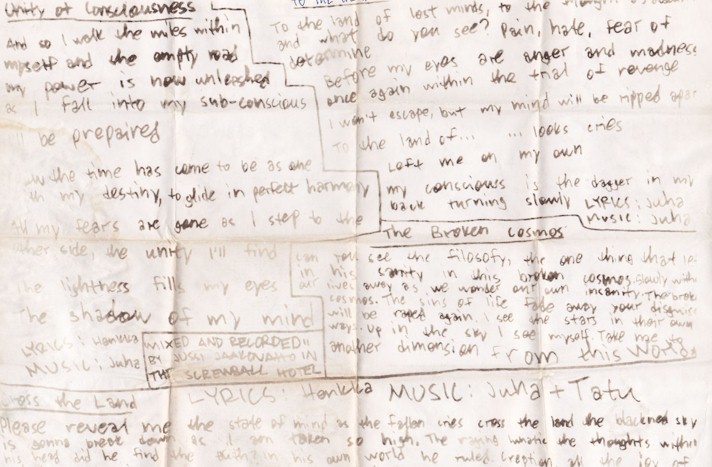 Unity of Consciousness
And so I walk the miles within
myself and the empty road
my power is now unleashed
as I fall into my sub-conscious
be prepaired
the time has come to be as one
my destiny, to glide in perfect harmony
All my fears are gone as I step to the
other side, the unity I'll find
The lightness fills my eyes
The shadow of my mind
LYRICS: Henkka
MUSIC: Juha
MIXED AND RECORDED
BY JUSSI IN
THE SCREWBALL HOTEL
To the land of lost minds, to the
and what do you see? Pain, hate, fear of
determine
Before my eyes are anger and madness
once again within the trial of revenge
I won't escape, but my mind will be ripped apar
To the land of... ...looks cries
Left me on my own
my conscious is the dagger in my
back turning slowly LYRICS: Juha
MUSIC: Juha
The Broken Cosmos
can you see the filosofy, the one thing that
in his sanity in this broken cosmos. Slowly with
our lives away as we wonder our own incanity. The brok
cosmos. The sins of life fade away your
will be raped again. I see the stars in their own
way. Up in the sky I see myself. Take me to
another dimension from this World
Cross the Land
LYRICS: Henkka MUSIC: Juha + Tatu
Please reveal me the state of mind as the fallen cries cross the land the blackned sky
is gonna break down as I am taken so high. The raging lunatic the thoughts within
his head did he find the in his own world he ruled. all the joy of